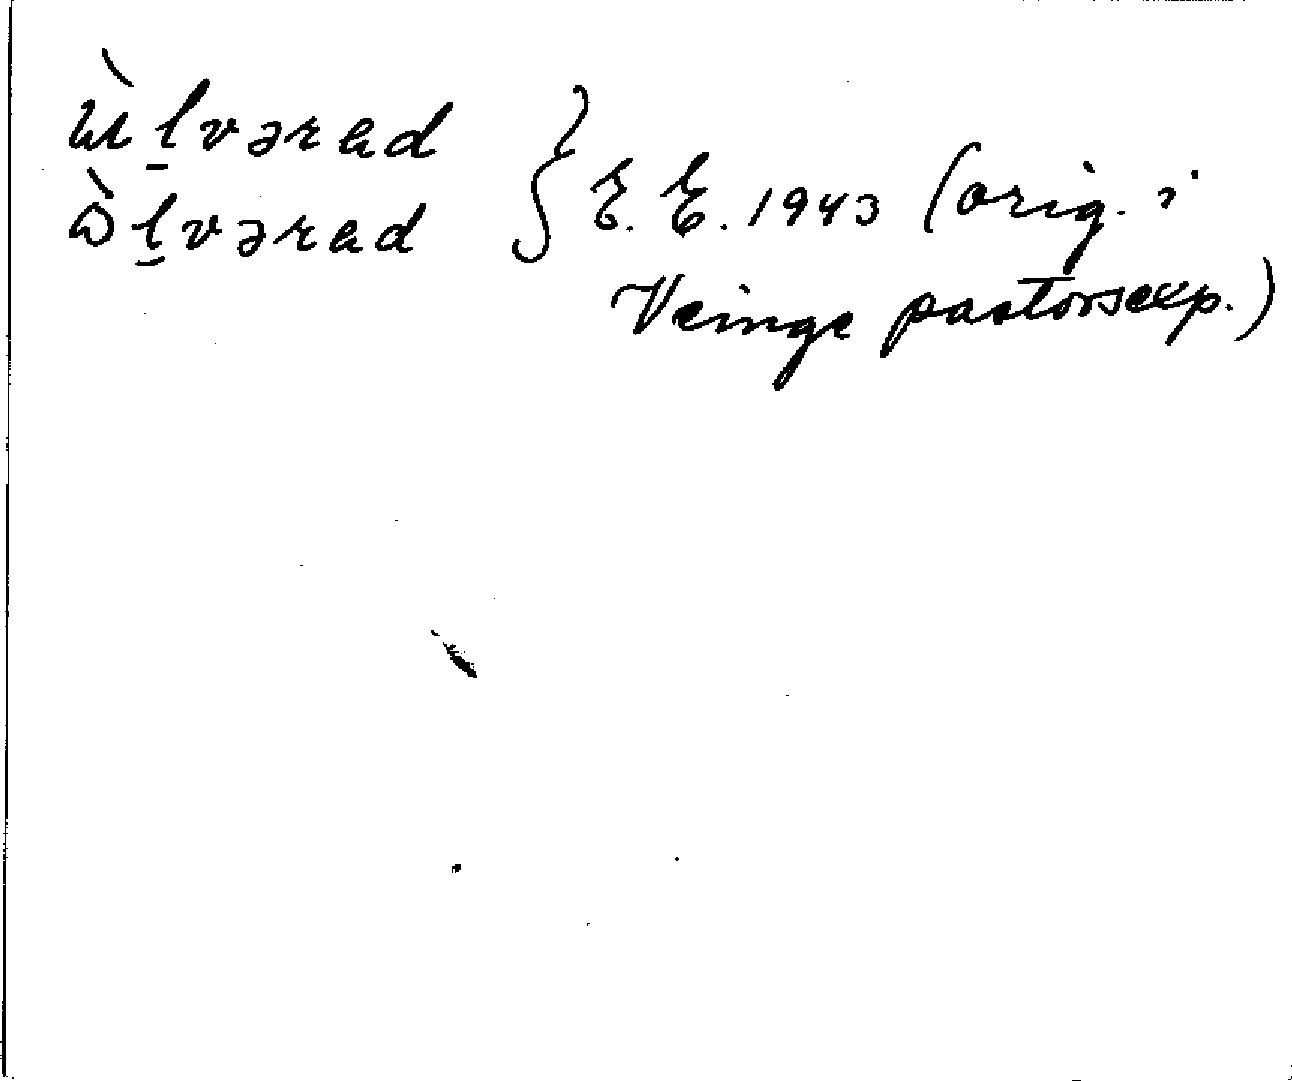 ɯ̀l̠vərad
ὼl̠vərad } E. E. 1943 (orig. i
Veinge pastorsexp.)